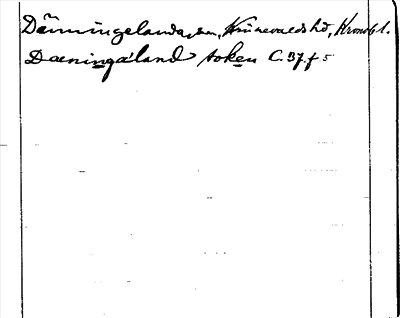 Dänningelanda sn, Kinnevalds hd, Kronob l.
Dæningaland soken C. 37. f 5